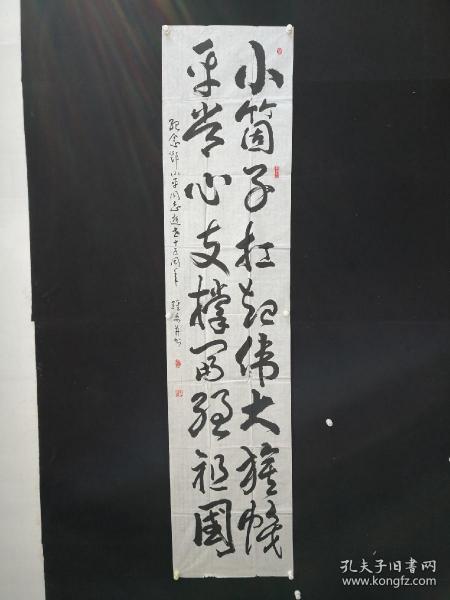 小箇子扛起伟大旗帜
平常心支撑富强祖国
纪念邓小平同志逝世十五周年
孔夫子旧书网
www.kongfz.com